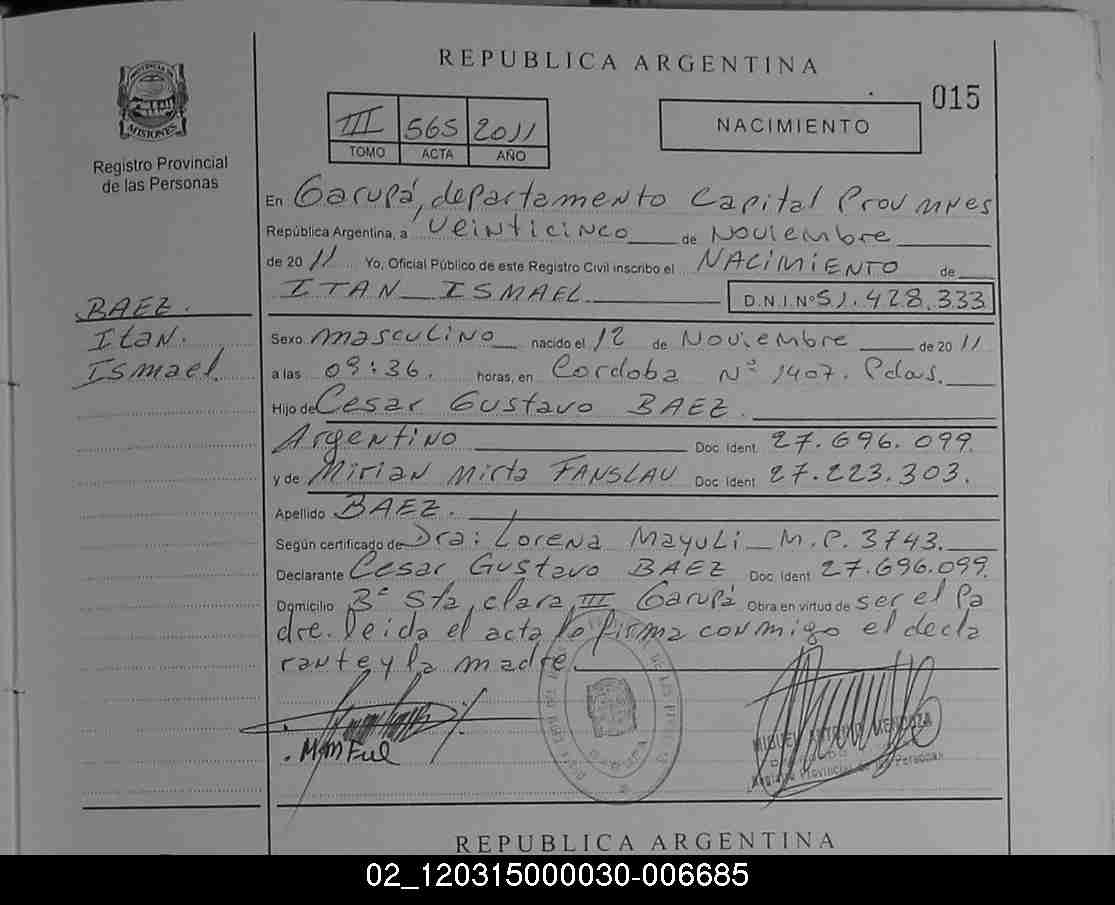 REPUBLICA ARGENTINA
015
PROVINCIA DE
MISIONES
Registro Provincial
de las Personas
III 565 2011
TOMO ACTA AÑO
NACIMIENTO
En Garupá, departamento Capital Prov Mnes
República Argentina, a veinticinco de Noviembre
de 20 11 Yo, Oficial Público de este Registro Civil inscribo el NACIMIENTO de
ITAN ISMAEL D.N.I.Nº 51.428.333
BAEZ.
Itan.
Ismael.
Sexo masculino nacido el 12 de Noviembre de 20 11
a las 09:36. horas, en Cordoba Nº 1407. Pdas.
Hijo de Cesar Gustavo BAEZ.
Argentino Doc. Ident. 27.696.099
y de Mirian Mirta FANSLAU Doc. Ident. 27.223.303.
Apellido BAEZ.
Según certificado de Dra: Lorena Mayuli M.P. 3743.
Declarante Cesar Gustavo BAEZ Doc. Ident. 27.696.099.
Domicilio Bº Sta, clara, III Garupá Obra en virtud de ser el Pa
dre. leida el acta lo firma conmigo el decla
rante y la madre.
MIGUEL ANTONIO MENDOZA
Registro Provincial de las Personas
REPUBLICA ARGENTINA
02_120315000030-006685